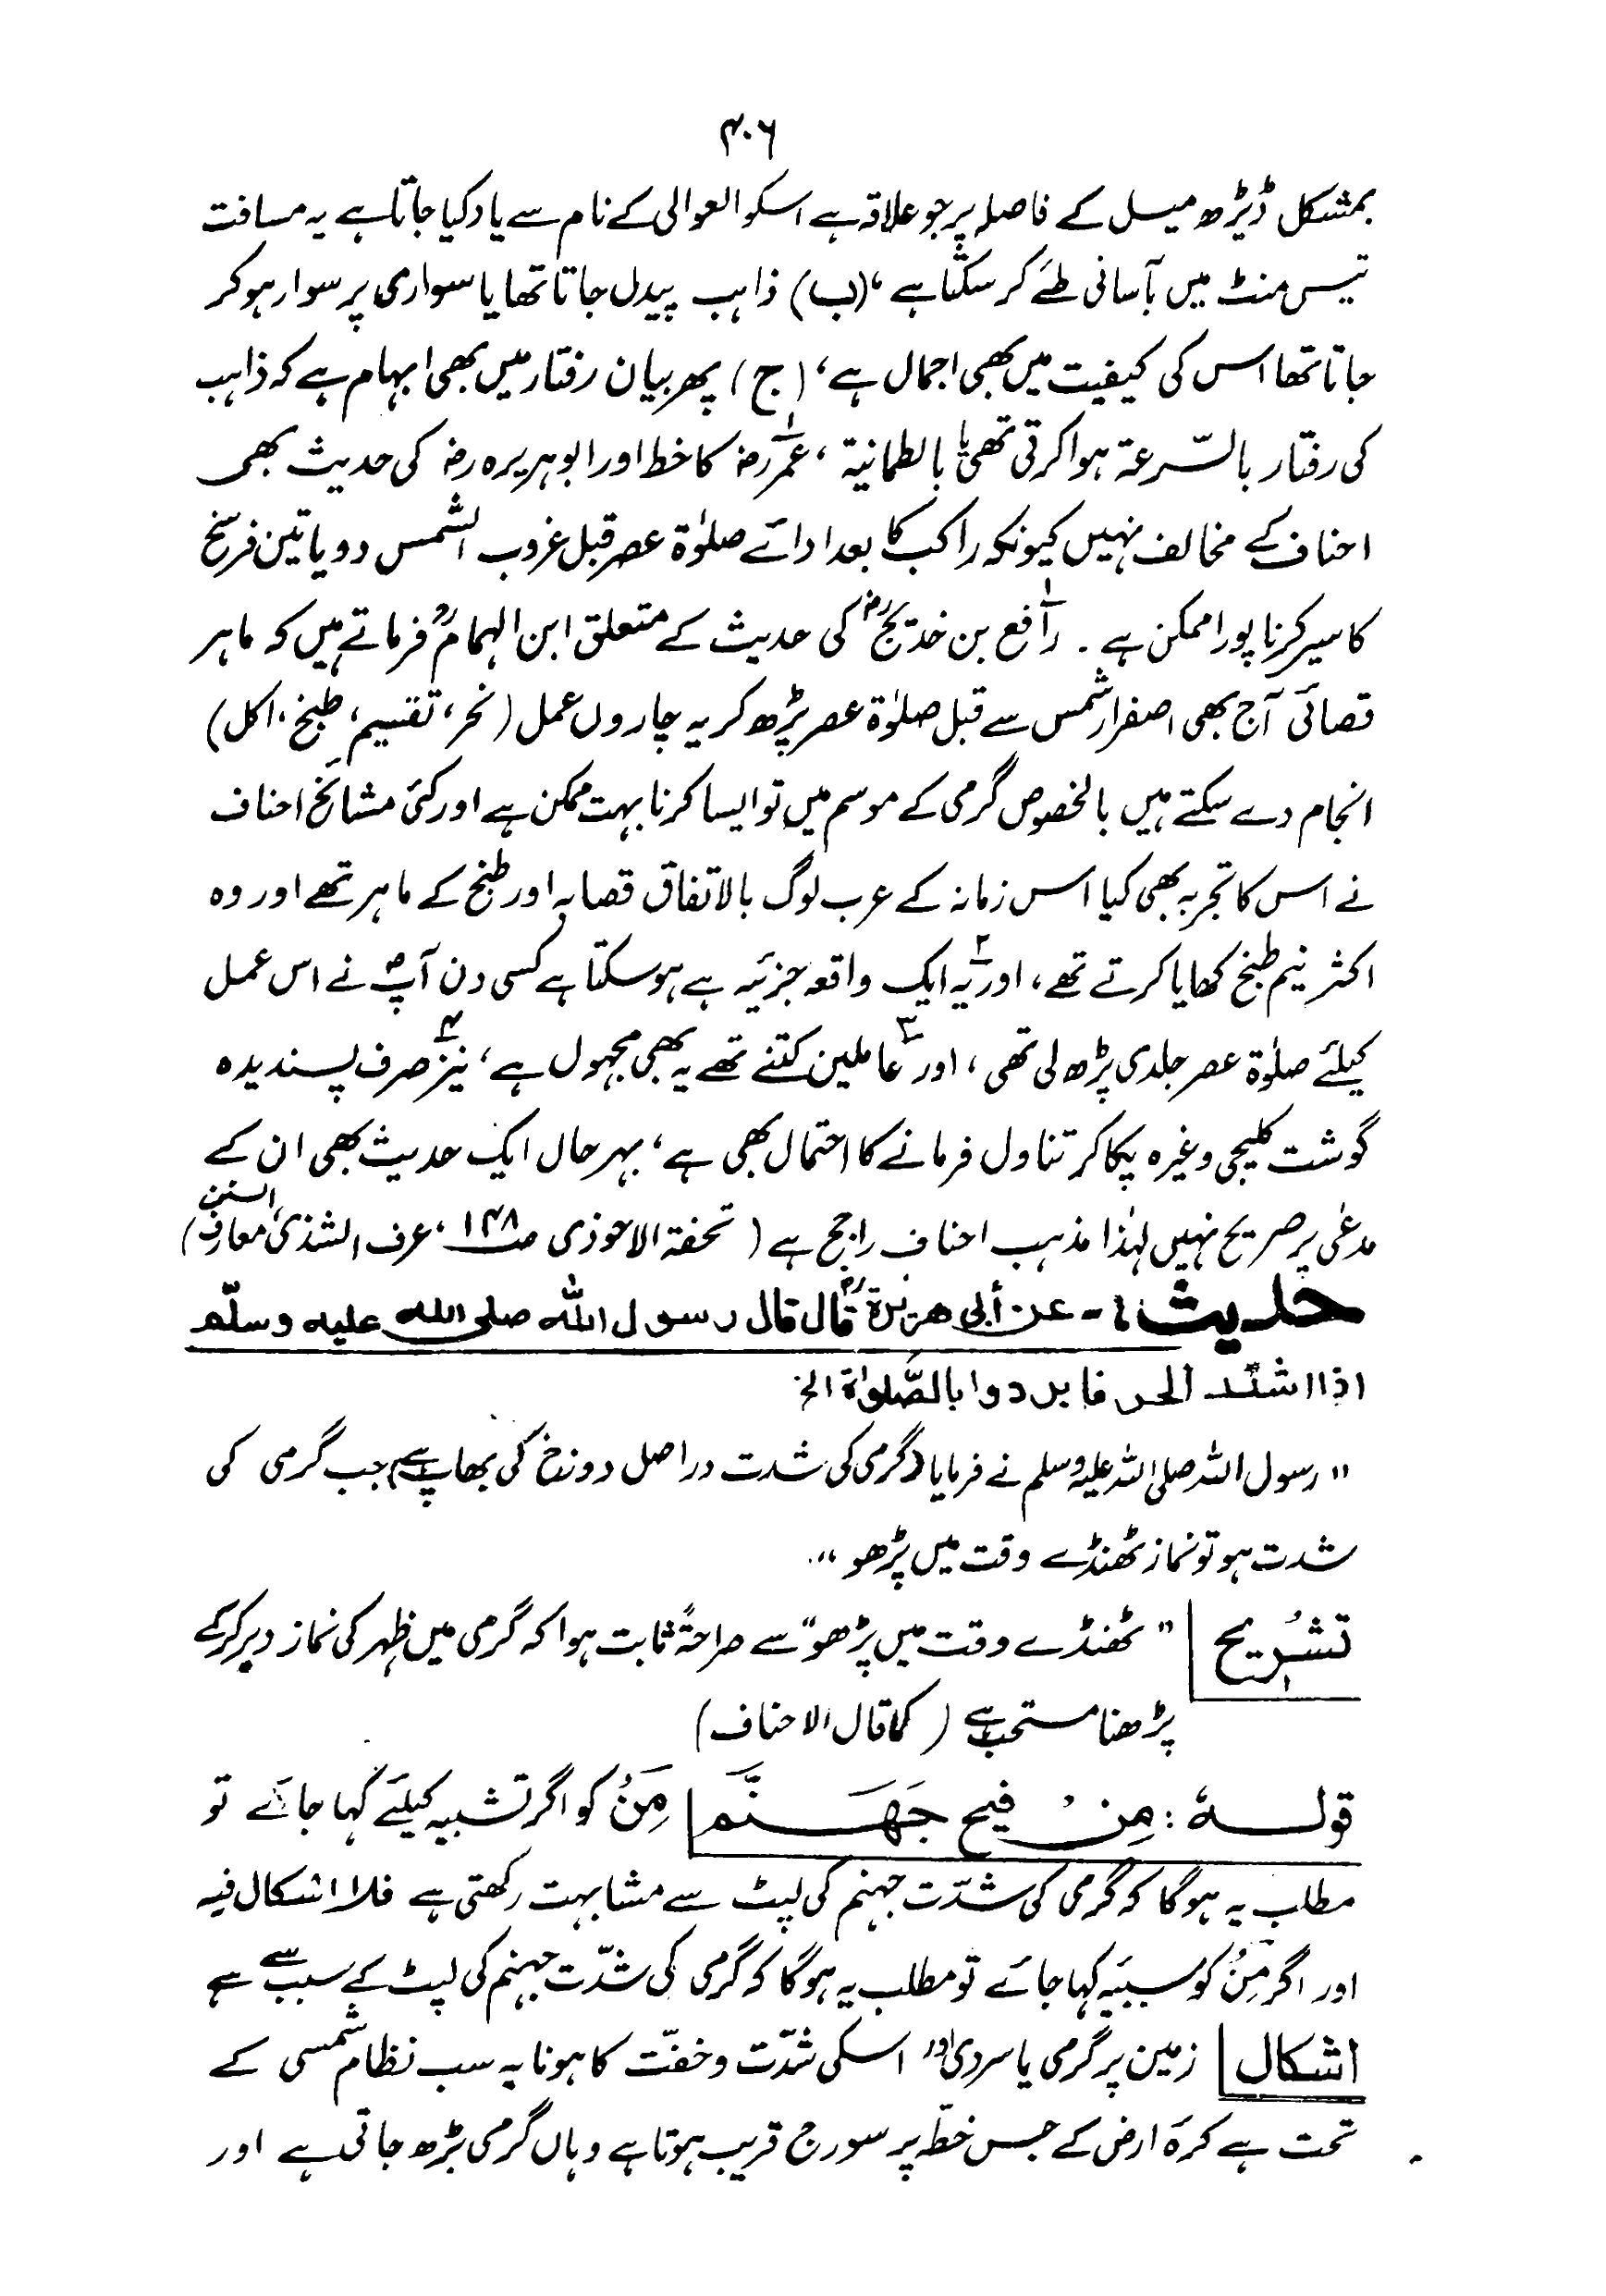 ۴۰۶
بمشکل ڈیڑھ میل کے فاصلہ پر جو علاقہ ہے اسکو العوالی کے نام سے یاد کیا جاتا ہے یہ مسافت
تیس منٹ میں بآسانی طئے کر سکتا ہے، (ب) ذاہب پیدل جاتا تھا یا سواری پر سوار ہو کر
جاتا تھا اس کی کیفیت میں بھی اجمال ہے، (ج) پھر بیان رفتار میں بھی ابہام ہے کہ ذاہب
کی رفتار بالسّرعۃ ہوا کرتی تھی یا بالطمانیۃ، عمرؓ کا خط اور ابوہریرہ رضؓ کی حدیث بھی
احناف کے مخالف نہیں کیونکہ راکب کا بعد ادائے صلوٰۃ عصر قبل غروب الشمس دو یا تین فرسخ
کا سیر کرنا پورا ممکن ہے۔ رافع بن خدیجؓ کی حدیث کے متعلق ابن الہمامؒ فرماتے ہیں کہ ماہر
قصائی آج بھی اصفرار شمس سے قبل صلوٰۃ عصر پڑھ کر یہ چاروں عمل (نحر، تقسیم، طبخ، اکل)
انجام دے سکتے ہیں بالخصوص گرمی کے موسم میں تو ایسا کرنا بہت ممکن ہے اور کئی مشائخ احناف
نے اس کا تجربہ بھی کیا اس زمانہ کے عرب لوگ بالاتفاق قصابہ اور طبخ کے ماہر تھے اور وہ
اکثر نیم طبخ کھایا کرتے تھے، اور ۲ یہ ایک واقعہ جزئیہ ہے ہو سکتا ہے کسی دن آپؐ نے اس عمل
کیلئے صلوٰۃ عصر جلدی پڑھ لی تھی، اور ۳ عاملین کتنے تھے یہ بھی مجہول ہے، ۴ نیز صرف پسندیدہ
گوشت کلیجی وغیرہ پکا کر تناول فرمانے کا احتمال بھی ہے، بہرحال ایک حدیث بھی ان کے
مدعٰی پر صریح نہیں لہٰذا مذہب احناف راجح ہے (تحفۃ الاحوذی صـ۱۴۸، عرف الشذی، معارف السنن)
حدیث :- عن أبی ھریرۃؓ قال قال رسول اللہ صلی اللہ علیہ وسلّم
اذا اشتد الحر فابردوا بالصّلوٰۃ الخ
"رسول اللہ صلی اللہ علیہ وسلم نے فرمایا (گرمی کی شدت دراصل دوزخ کی بھاپ ہے) جب گرمی کی
شدت ہو تو نماز ٹھنڈے وقت میں پڑھو"۔
تشریح | "ٹھنڈے وقت میں پڑھو" سے صراحۃً ثابت ہوا کہ گرمی میں ظہر کی نماز دیر کرکے
پڑھنا مستحب ہے (کما قال الاحناف)
قولہٗ : مِنْ فیح جَھَنَّم | مِنْ کو اگر تشبیہ کیلئے کہا جائے تو
مطلب یہ ہوگا کہ گرمی کی شدّت جہنم کی لپٹ سے مشابہت رکھتی ہے فلا اشکال فیہ
اور اگر مِنْ کو سببیہ کہا جائے تو مطلب یہ ہوگا کہ گرمی کی شدّت جہنم کی لپٹ کے سبب سے ہے
اشکال | زمین پر گرمی یا سردی اور اسکی شدّت و خفّت کا ہونا یہ سب نظام شمسی کے
تحت ہے کرۂ ارض کے جس خطّہ پر سورج قریب ہوتا ہے وہاں گرمی بڑھ جاتی ہے اور